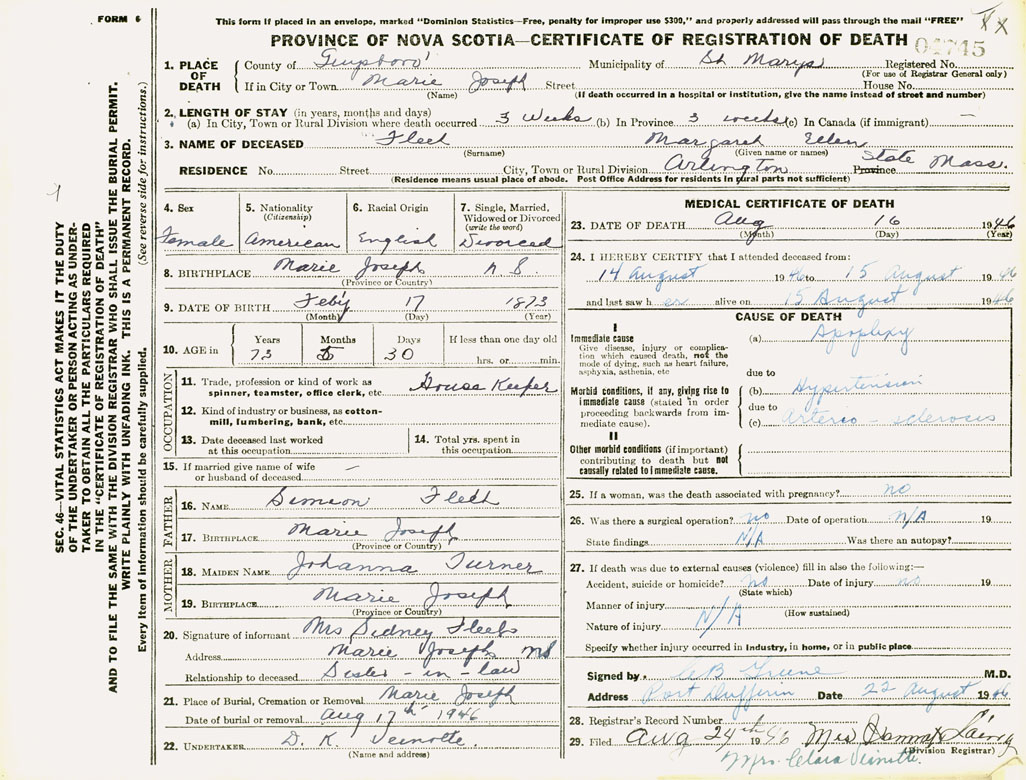 FORM 6
This form if placed in an envelope, marked "Dominion Statistics—Free, penalty for improper use $300," and properly addressed will pass through the mail "FREE"
XX
PROVINCE OF NOVA SCOTIA—CERTIFICATE OF REGISTRATION OF DEATH
04745
1. PLACE OF DEATH
County of Guysboro' Municipality of St Marys Registered No.
(For use of Registrar General only)
If in City or Town Marie Joseph Street House No.
(Name) (If death occurred in a hospital or institution, give the name instead of street and number)
2. LENGTH OF STAY (in years, months and days)
(a) In City, Town or Rural Division where death occurred 3 Weeks (b) In Province 3 weeks (c) In Canada (if immigrant) —
3. NAME OF DECEASED Fleet Margaret Ellen
(Surname) (Given name or names)
RESIDENCE No. Street City, Town or Rural Division Arlington Province State Mass.
(Residence means usual place of abode. Post Office Address for residents in rural parts not sufficient)
4. Sex
Female
5. Nationality
(Citizenship)
American
6. Racial Origin
English
7. Single, Married, Widowed or Divorced
(write the word)
Divorced
8. BIRTHPLACE Marie Joseph N S.
(Province or Country)
9. DATE OF BIRTH Feby 17 1873
(Month) (Day) (Year)
10. AGE in
Years Months Days If less than one day old
73 5 30 hrs. or min.
OCCUPATION
11. Trade, profession or kind of work as spinner, teamster, office clerk, etc. House Keeper
12. Kind of industry or business, as cotton-mill, lumbering, bank, etc.
13. Date deceased last worked at this occupation
14. Total yrs. spent in this occupation
15. If married give name of wife or husband of deceased —
FATHER
16. NAME Simeon Fleet
17. BIRTHPLACE Marie Joseph
(Province or Country)
MOTHER
18. MAIDEN NAME Johanna Turner
19. BIRTHPLACE Marie Joseph
(Province or Country)
20. Signature of informant Mrs Sidney Fleet
Address Marie Joseph NS
Relationship to deceased Sister-in-law
21. Place of Burial, Cremation or Removal Marie Joseph
Date of burial or removal Aug 17th 1946
22. UNDERTAKER D. K. Veinotte.
(Name and address)
MEDICAL CERTIFICATE OF DEATH
23. DATE OF DEATH Aug 16 1946
(Month) (Day) (Year)
24. I HEREBY CERTIFY that I attended deceased from:
14 August 1946 to 15 August 1946
and last saw her alive on 15 August 1946
CAUSE OF DEATH
I
Immediate cause
Give disease, injury or complication which caused death, not the mode of dying, such as heart failure, asphyxia, asthenia, etc
(a) Apoplexy
due to
Morbid conditions, if any, giving rise to immediate cause (stated in order proceeding backwards from immediate cause).
(b) Hypertension
due to
(c) Arterio-sclerosis
II
Other morbid conditions (if important) contributing to death but not causally related to immediate cause.
25. If a woman, was the death associated with pregnancy? no
26. Was there a surgical operation? no Date of operation N/A 19
State findings N/A Was there an autopsy?
27. If death was due to external causes (violence) fill in also the following:—
Accident, suicide or homicide? no Date of injury no 19
(State which)
Manner of injury N/A
(How sustained)
Nature of injury
Specify whether injury occurred in industry, in home, or in public place
Signed by A B Greene M.D.
Address Port Dufferin Date 22 August 1946
28. Registrar's Record Number
29. Filed Aug 24th 1946 Mrs
(Division Registrar)
Mrs. Clara Veinotte.
SEC. 46—VITAL STATISTICS ACT MAKES IT THE DUTY
OF THE UNDERTAKER OR PERSON ACTING AS UNDERTAKER
TO OBTAIN ALL THE PARTICULARS REQUIRED
IN THE "CERTIFICATE OF REGISTRATION OF DEATH"
AND TO FILE THE SAME WITH THE DIVISION REGISTRAR WHO SHALL ISSUE THE BURIAL PERMIT.
WRITE PLAINLY WITH UNFADING INK. THIS IS A PERMANENT RECORD.
Every item of information should be carefully supplied. (See reverse side for instructions.)